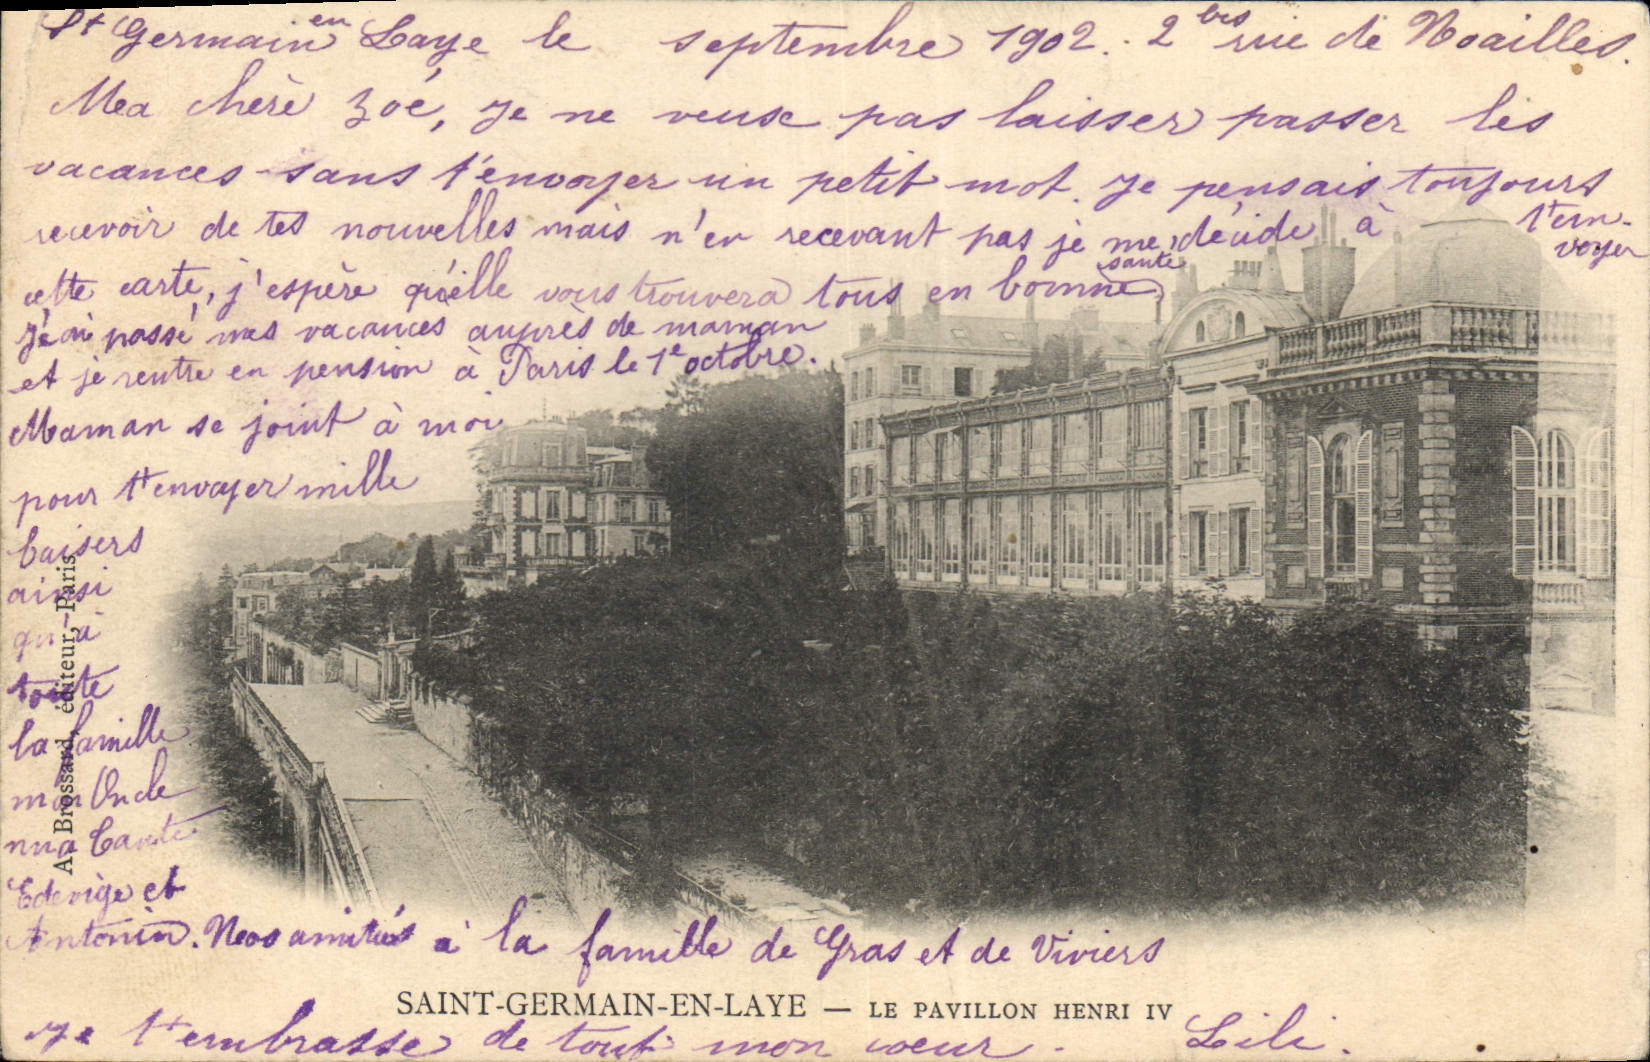 St Germain en Laye le septembre 1902. 2 bis rue de Noailles.
Ma chère Zoé, Je ne veux pas laisser passer les
vacances sans t'envoyer un petit mot. Je pensais toujours
recevoir de tes nouvelles mais n'en recevant pas je me décide à t'en-
voyer
cette carte, j'espère qu'elle vous trouvera tous en bonne santé
J'ai passé mes vacances auprès de maman
et je rentre en pension à Paris le 1e octobre.
Maman se joint à moi
pour t'envoyer mille
baisers
ainsi
qu'à
toute
la famille
mon Oncle
ma Tante
Edevige et
Antonin. Nos amitiés à la famille de Gras et de Viviers
Je t'embrasse de tout mon coeur. Lili.
SAINT-GERMAIN-EN-LAYE — LE PAVILLON HENRI IV
A. Brossard, éditeur, Paris